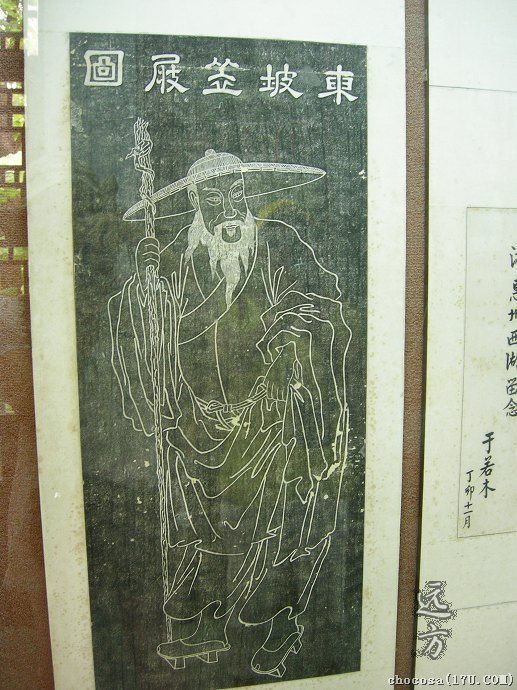 東坡笠屐圖
惠州西湖留念
于若木
丁卯十一月
远方
chocosa(17U.COM)